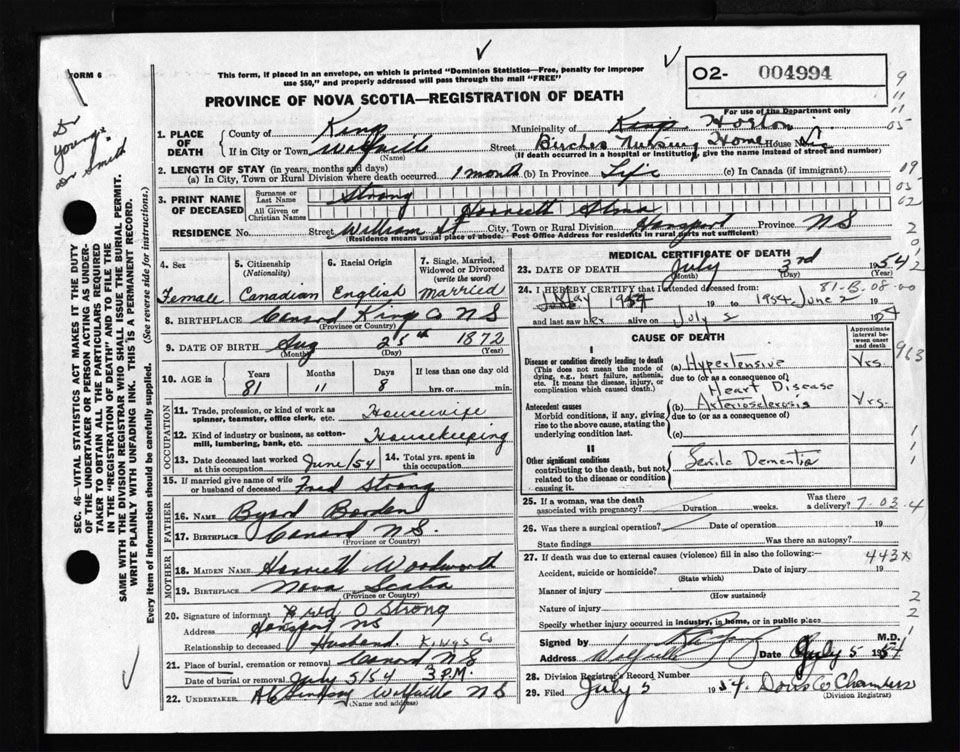 FORM 6
This form, if placed in an envelope, on which is printed "Dominion Statistics—Free, penalty for improper
use $50," and properly addressed will pass through the mail "FREE"
02- 004994
For use of the Department only
PROVINCE OF NOVA SCOTIA—REGISTRATION OF DEATH
Dr
Young
Dr Smith
1. PLACE OF DEATH
County of Kings Municipality of Kings Horton
If in City or Town Wolfville (Name) Street Birches Nursing Home House No.
(If death occurred in a hospital or institution, give the name instead of street and number)
2. LENGTH OF STAY (in years, months and days)
(a) In City, Town or Rural Division where death occurred 1 month (b) In Province Life (c) In Canada (if immigrant)
3. PRINT NAME OF DECEASED
Surname or Last Name Strong
All Given or Christian Names Harriett Alma
RESIDENCE No. Street William St City, Town or Rural Division Hansport Province NS
(Residence means usual place of abode. Post Office Address for residents in rural parts not sufficient)
4. Sex Female
5. Citizenship (Nationality) Canadian
6. Racial Origin English
7. Single, Married, Widowed or Divorced (write the word) Married
8. BIRTHPLACE Canard Kings Co NS
(Province or Country)
9. DATE OF BIRTH Aug 25th 1872
(Month) (Day) (Year)
10. AGE in Years 81 Months 11 Days 8 If less than one day old hrs. or min.
OCCUPATION
11. Trade, profession, or kind of work as spinner, teamster, office clerk. etc. Housewife
12. Kind of industry or business, as cotton-mill, lumbering, bank, etc. Housekeeping
13. Date deceased last worked at this occupation June/54 14. Total yrs. spent in this occupation
15. If married give name of wife or husband of deceased Fred Strong
FATHER
16. NAME Byard Borden
17. BIRTHPLACE Canard NS.
(Province or Country)
MOTHER
18. MAIDEN NAME Harriett Woodworth
19. BIRTHPLACE Nova Scotia
(Province or Country)
20. Signature of informant Fred O Strong
Address Hansport NS
Relationship to deceased Husband. Kings Co
21. Place of burial, cremation or removal Canard NS
Date of burial or removal July 5/54 3 P.M.
22. UNDERTAKER Lindsay Wolfville NS
(Name and address)
MEDICAL CERTIFICATE OF DEATH
23. DATE OF DEATH July 3rd 1954
(Month) (Day) (Year)
81-B.08-00
24. I HEREBY CERTIFY that I attended deceased from:
May 19 to 1954 June 2 19
and last saw her alive on July 2 1954
CAUSE OF DEATH
Approximate interval between onset and death
I
Disease or condition directly leading to death
(This does not mean the mode of dying, e.g., heart failure, asthenia, etc. It means the disease, injury, or complication which caused death.)
(a) Hypertensive Yrs.
due to (or as a consequence of)
Heart Disease
Antecedent causes
Morbid conditions, if any, giving rise to the above cause, stating the underlying condition last.
(b) Arteriosclerosis Yrs.
due to (or as a consequence of)
(c)
II
Other significant conditions
contributing to the death, but not related to the disease or condition causing it
Senile Dementia
25. If a woman, was the death associated with pregnancy? Duration weeks. Was there a delivery? 7-03-4
26. Was there a surgical operation? Date of operation 19
State findings Was there an autopsy?
27. If death was due to external causes (violence) fill in also the following:— 443x
Accident, suicide or homicide? Date of injury 19
(State which)
Manner of injury
(How sustained)
Nature of injury
Specify whether injury occurred in industry, in home, or in public place
Signed by M.D.
Address Wolfville Date July 5 1954
28. Division Registrar's Record Number
29. Filed July 5 1954. Chambers
(Division Registrar)
SEC. 46—VITAL STATISTICS ACT MAKES IT THE DUTY
OF THE UNDERTAKER OR PERSON ACTING AS UNDER-
TAKER TO OBTAIN ALL THE PARTICULARS REQUIRED
IN THE "REGISTRATION OF DEATH" AND TO FILE THE
SAME WITH THE DIVISION REGISTRAR WHO SHALL ISSUE THE BURIAL PERMIT.
WRITE PLAINLY WITH UNFADING INK. THIS IS A PERMANENT RECORD.
Every item of information should be carefully supplied. (See reverse side for instructions.)
9
11
05
19
03
02
2
0
1
2
963
1
1
2
2